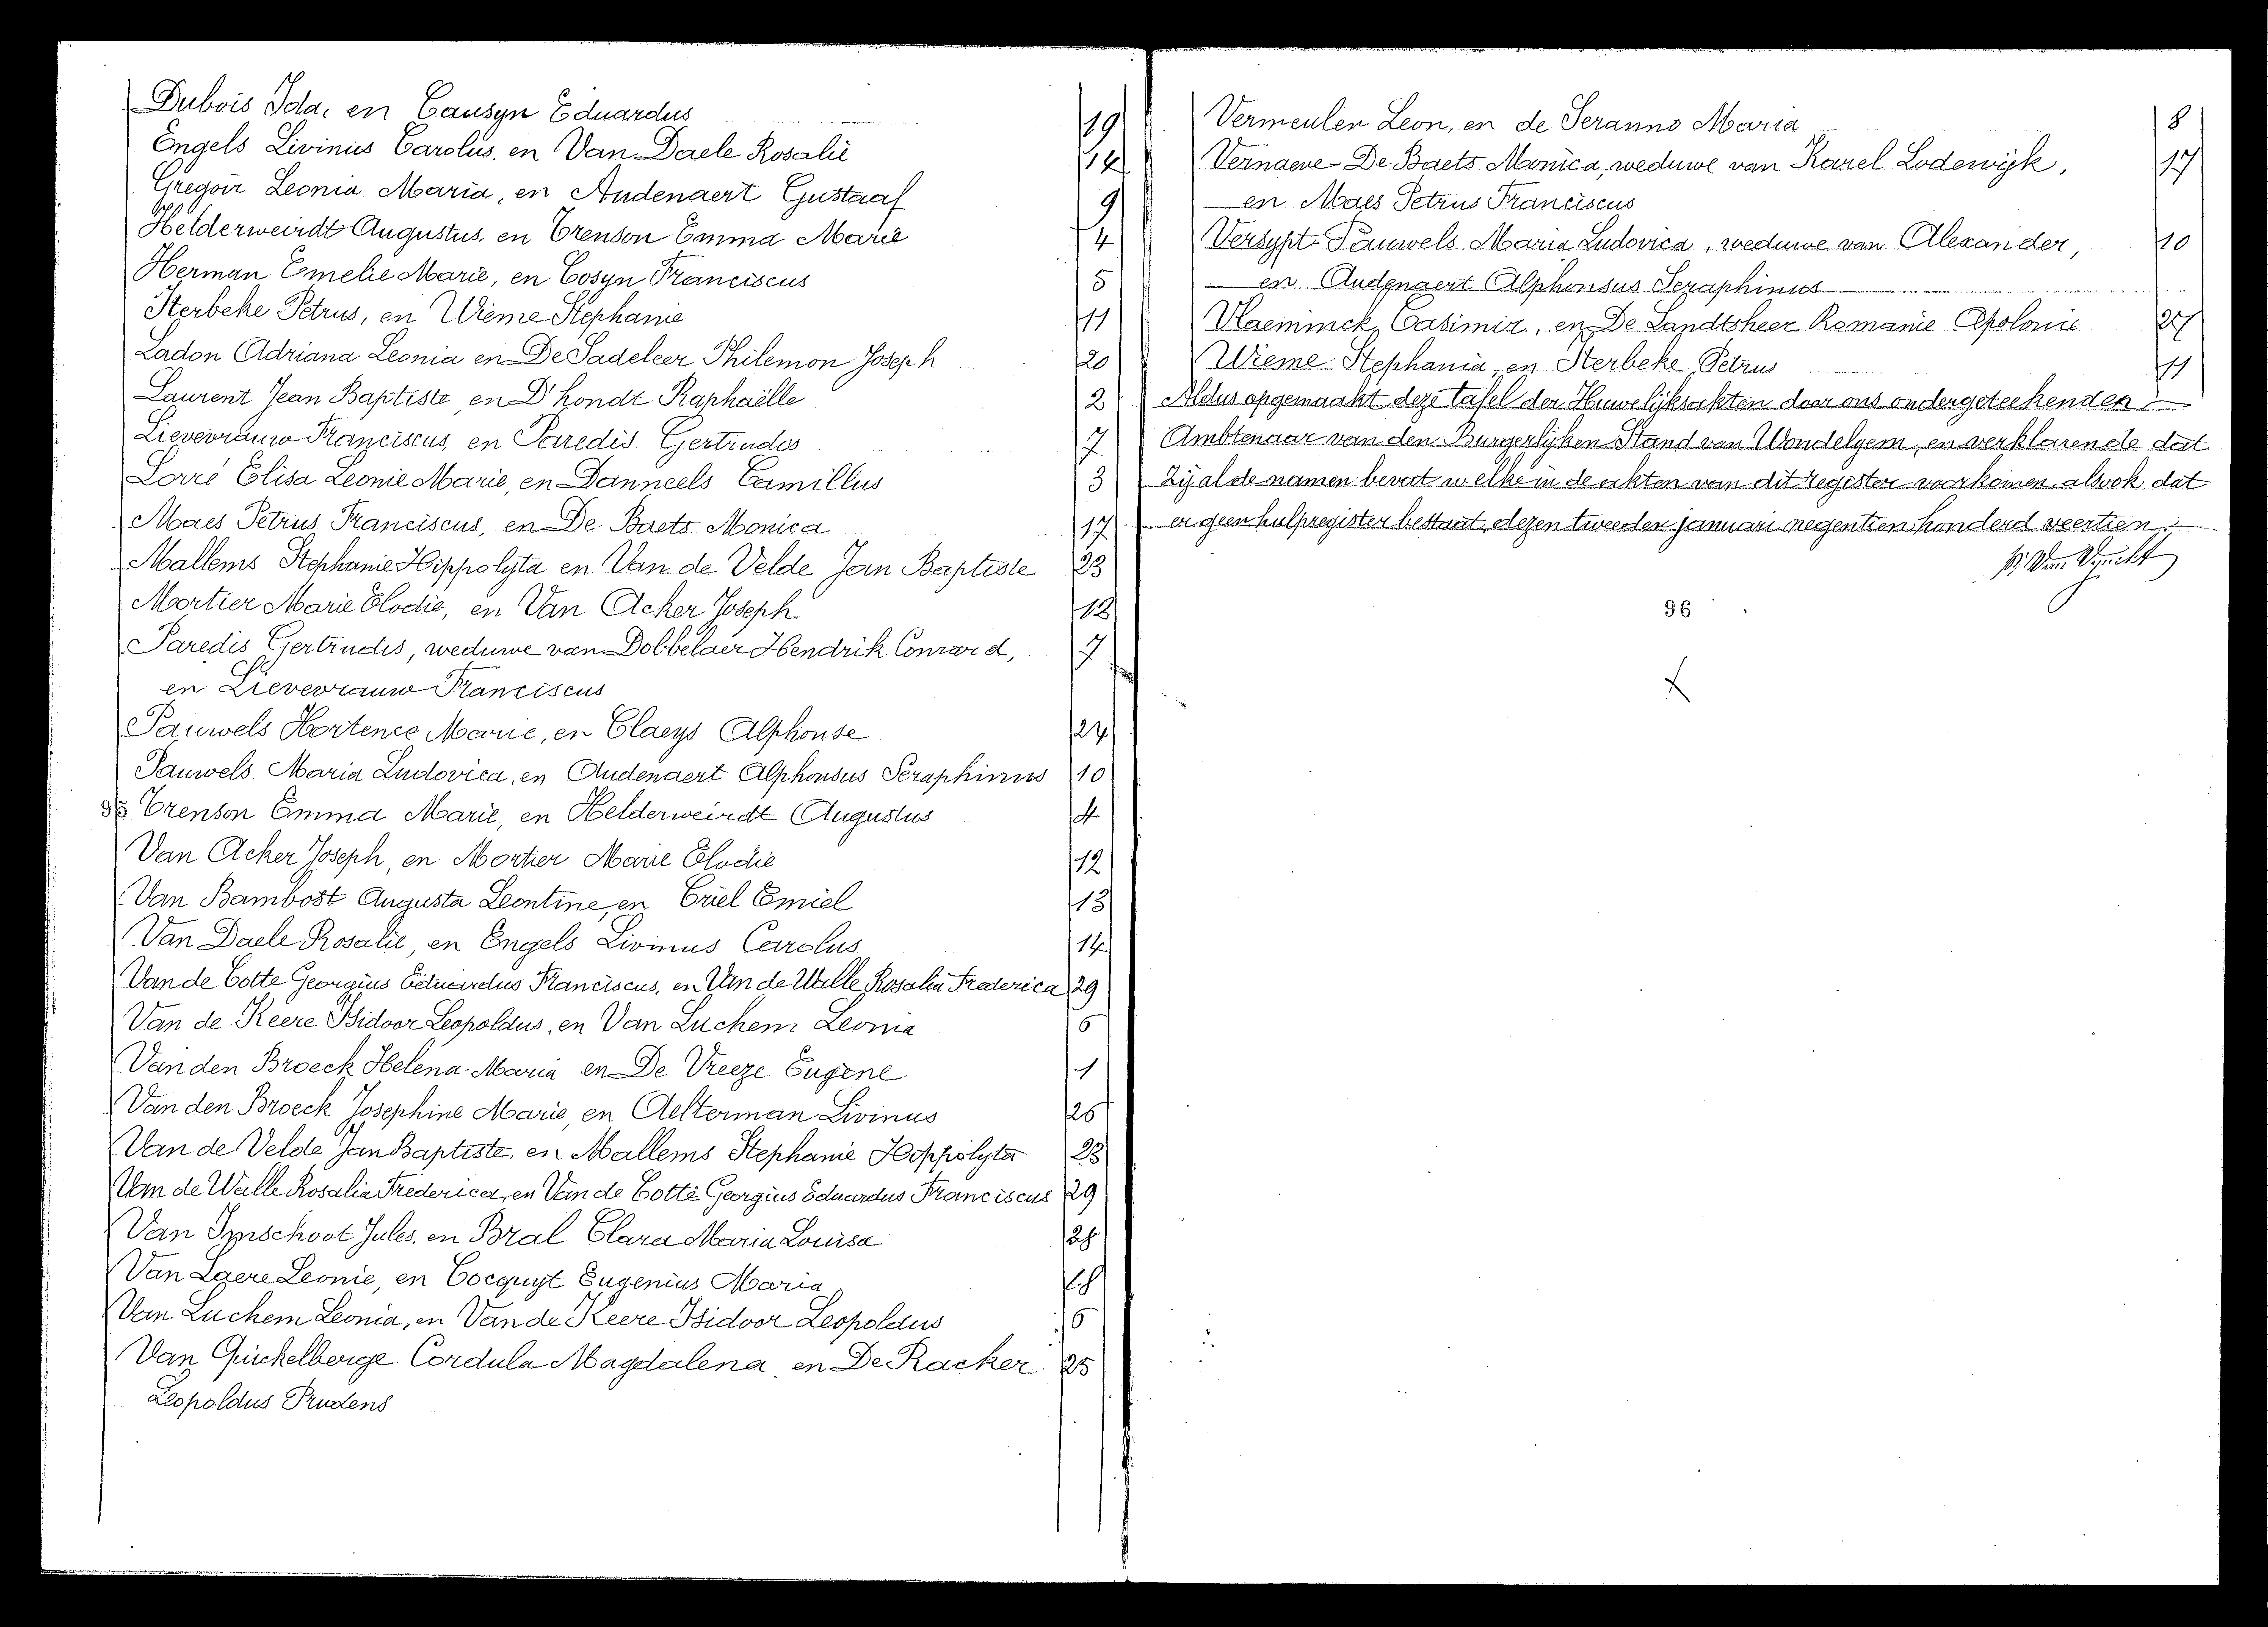 Dubois Ida, en Causyn Eduardus 19
Engels Livinus Carolus, en Van Daele Rosalie 14
Gregoir Leonia Maria, en Audenaert Gustaaf 9
Helderweirdt Augustus, en Trenson Emma Marie 4
Herman Emelie Marie, en Cosyn Franciscus 5
Iterbeke Petrus, en Wieme Stephanie 11
Ladon Adriana Leonia en De Sadeleer Philemon Joseph 20
Laurent Jean Baptiste, en D'hondt Raphaëlle 2
Lievevrauw Franciscus, en Paredis Gertrudes 7
Lorré Elisa Leonie Marie, en Danneels Camillus 3
Maes Petrus Franciscus, en De Baets Monica 17
Mallems Stephanie Hippolyta en Van de Velde Jan Baptiste 23
Mortier Marie Elodie, en Van Acker Joseph 12
Paredis Gertrudis, weduwe van Dobbelaer Hendrik Conrard, 7
en Lievevrauw Franciscus
Pauwels Hortence Marie, en Claeys Alphonse 24
Pauwels Maria Ludovica, en Audenaert Alphonsus Seraphinus 10
95 Trenson Emma Marie, en Helderweirdt Augustus 4
Van Acker Joseph, en Mortier Marie Elodie 12
Van Bambost Augusta Leontine, en Criel Emiel 13
Van Daele Rosalie, en Engels Livinus Carolus 14
Van de Cotte Georgius Eduardus Franciscus, en Van de Walle Rosalia Frederica 29
Van de Keere Isidoor Leopoldus, en Van Luchem Leonia 6
Van den Broeck Helena Maria en De Vreeze Eugene 1
Van den Broeck Josephine Marie, en Aelterman Livinus 26
Van de Velde Jan Baptiste, en Mallems Stephanie Hippolyta 23
Van de Walle Rosalia Frederica, en Van de Cotte Georgius Eduardus Franciscus 29
Van Imschoot Jules, en Bral Clara Maria Louisa 28
Van Laere Leonie, en Cocquyt Eugenius Maria 18
Van Luchem Leonia, en Van de Keere Isidoor Leopoldus 6
Van Quickelberge Cordula Magdalena, en De Racker 25
Leopoldus Prudens
Vermeulen Leon, en de Seranno Maria 8
Vernaeve-De Baets Monica, weduwe van Karel Lodewijk, 17
en Maes Petrus Franciscus
Versypt-Pauwels Maria Ludovica, weduwe van Alexander, 10
en Audenaert Alphonsus Seraphinus
Vlaeminck Casimir, en De Landtsheer Romanie Apolonie 27
Wieme Stephania, en Iterbeke Petrus 11
Aldus opgemaakt deze tafel der Huwelijksakten door ons ondergeteekenden
Ambtenaar van den Burgerlijken Stand van Wondelgem, en verklarende dat
zij al de namen bevat welke in de akten van dit register voorkomen, alsook dat
er geen hulpregister bestaat, dezen tweeden januari negentien honderd veertien.
96